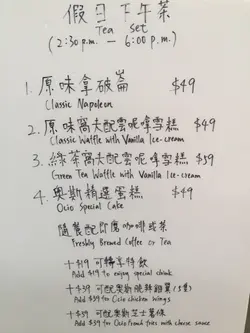 假日下午茶
Tea Set
(2:30 p.m. — 6:00 p.m.)
1. 原味拿破崙 $49
Classic Napoleon
2. 原味窩夫配雲呢嗱雪糕 $49
Classic Waffle with Vanilla Ice-cream
3. 綠茶窩夫配雲呢嗱雪糕 $59
Green Tea Waffle with Vanilla Ice-cream
4. 奧斯精選蛋糕 $49
Ocio Special Cake
隨餐配即磨咖啡或茶
Freshly Brewed Coffee or Tea
+$19 可轉享特飲
Add $19 to enjoy special drink
+$39 可配奧斯脆辣雞翼(5隻)
Add $39 for Ocio chicken wings
+$39 可配奧斯芝士薯條
Add $39 for Ocio French fries with cheese sauce